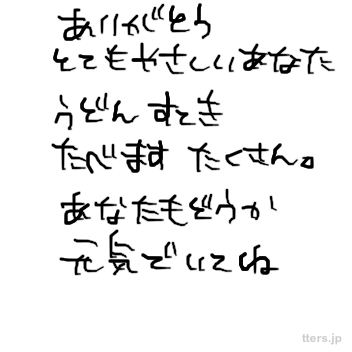 ありがとう
とてもやさしいあなた
うどん すてき
たべます たくさん。
あなたもどうか
元気でいてね
tters.jp